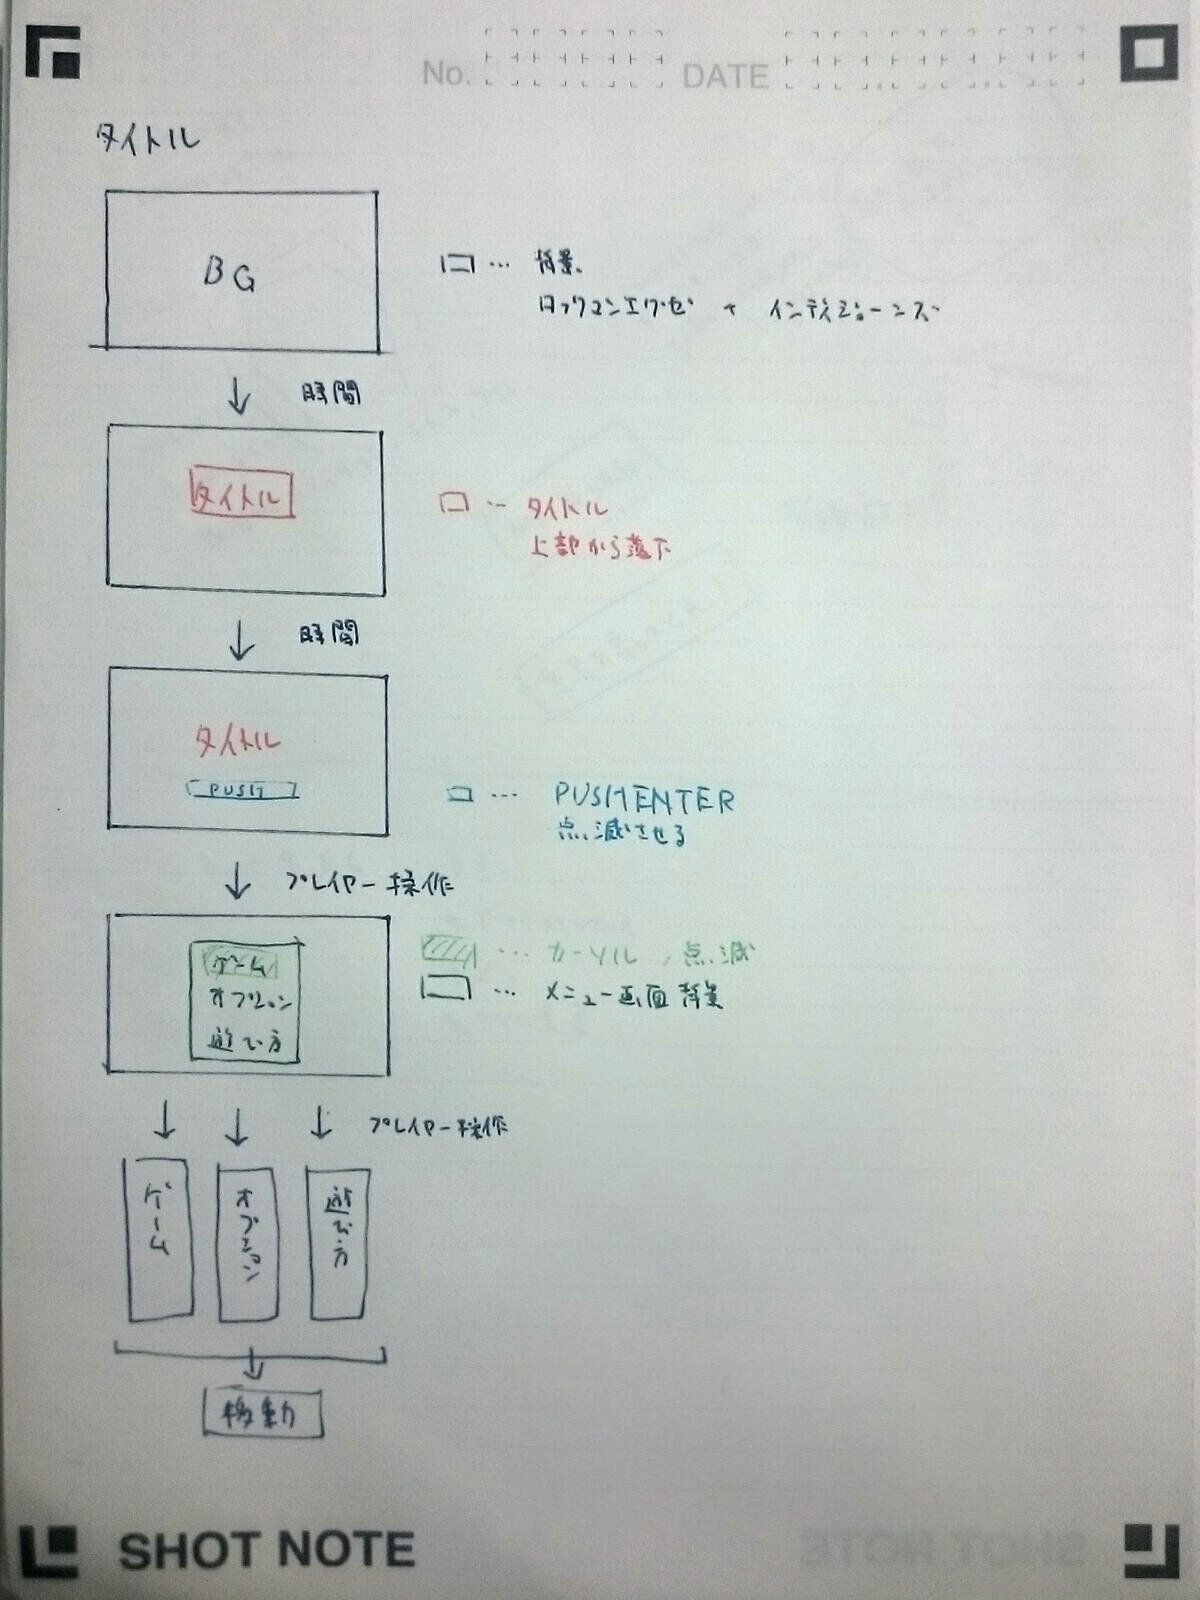 No. DATE
タイトル
BG
… 背景
ロックマンエグゼ + インディジョーンズ
↓ 時間
タイトル
… タイトル
上部から落下
↓ 時間
タイトル
PUSH
… PUSH ENTER
点滅させる
↓ プレイヤー操作
ゲーム
オプション
遊び方
… カーソル , 点滅
… メニュー画面背景
↓ ↓ ↓ プレイヤー操作
ゲーム
オプション
遊び方
↓
移動
SHOT NOTE